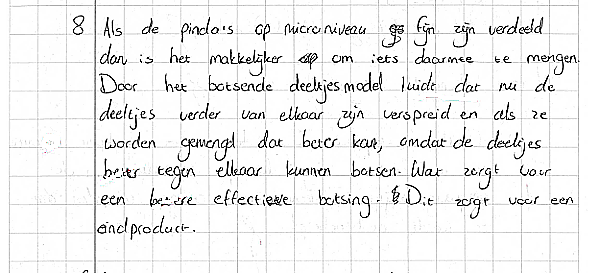 8 Als de pinda's op microniveau fijn zijn verdeeld
dan is het makkelijker om iets daarmee te mengen.
Door het botsende deeltjesmodel luidt dat nu de
deeltjes verder van elkaar zijn verspreid en als ze
worden gemengd dat beter kan, omdat de deeltjes
beter tegen elkaar kunnen botsen. Wat zorgt voor
een betere effectieve botsing. Dit zorgt voor een
eindproduct.